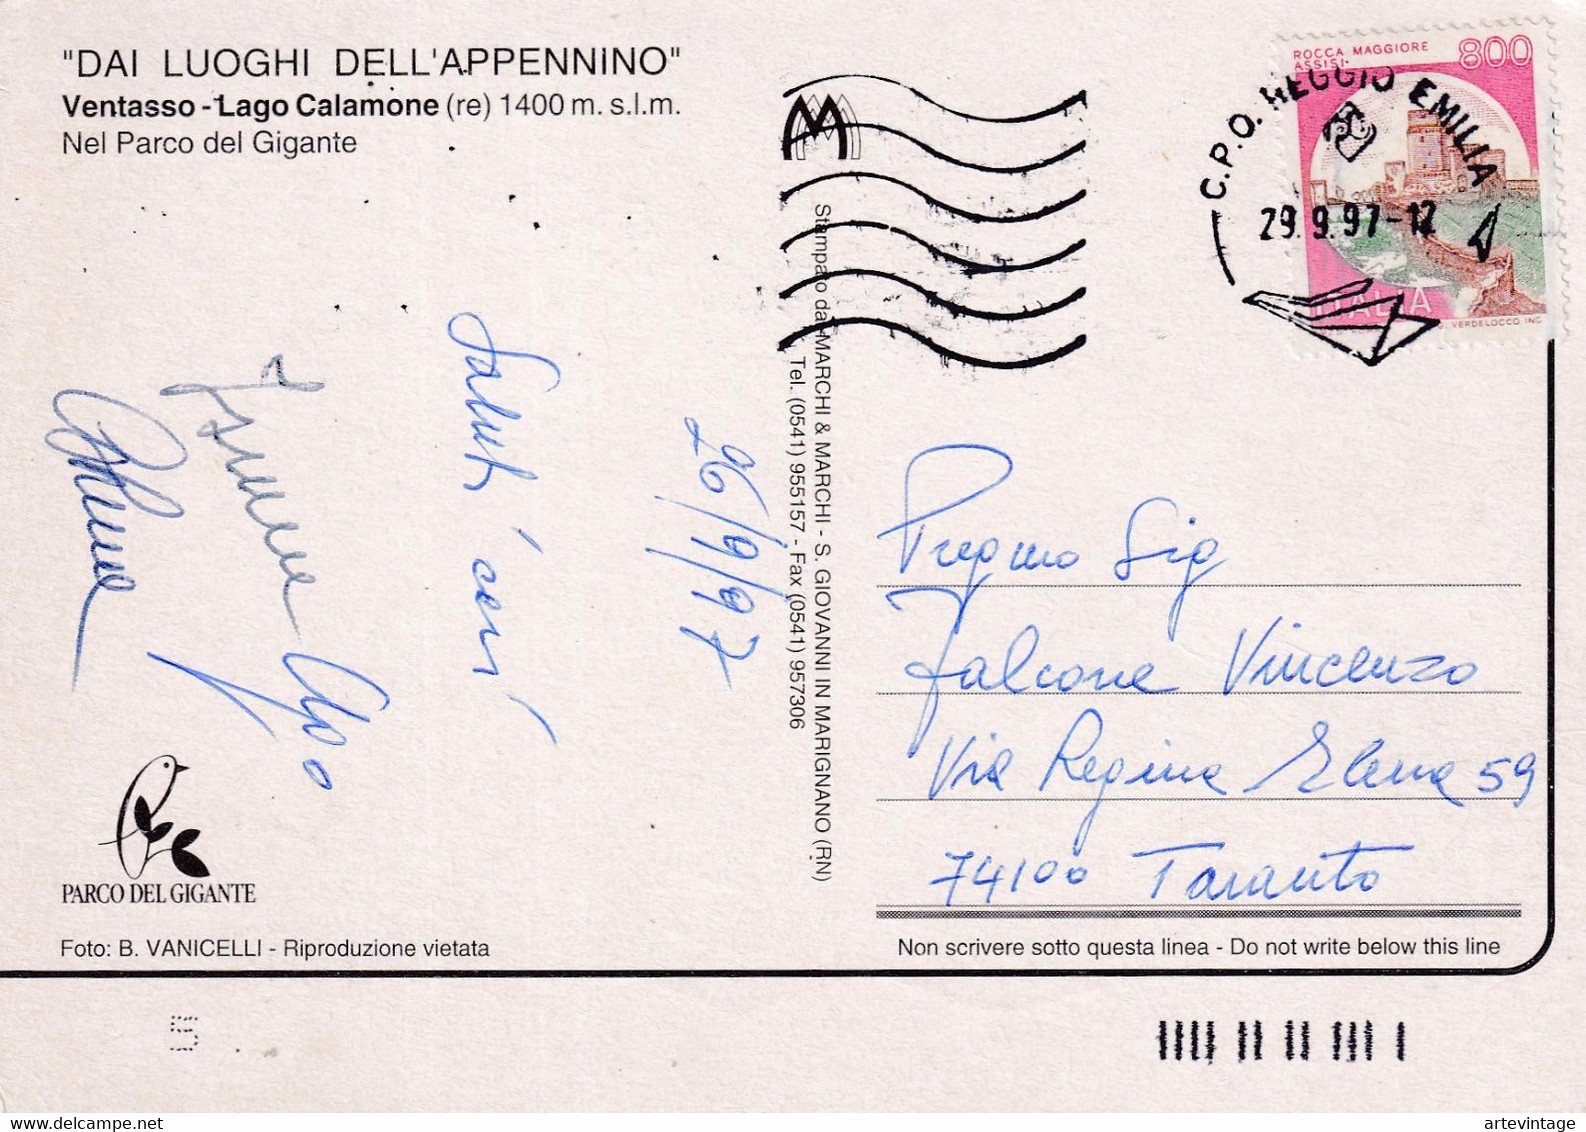 "DAI LUOGHI DELL'APPENNINO"
Ventasso - Lago Calamone (re) 1400 m. s.l.m.
Nel Parco del Gigante
ROCCA MAGGIORE
ASSISI
800
ITALIA
VERDELOCCO INC.
C.P.O. REGGIO EMILIA
29.9.97-12
Stampato da: MARCHI & MARCHI - S. GIOVANNI IN MARIGNANO (RN)
Tel. (0541) 955157 - Fax (0541) 957306
26/9/97
Saluti cari
Pregmo Sig
Falcone Vincenzo
Via Regina Elena 59
74100 Taranto
PARCO DEL GIGANTE
Foto: B. VANICELLI - Riproduzione vietata
Non scrivere sotto questa linea - Do not write below this line
artevintage